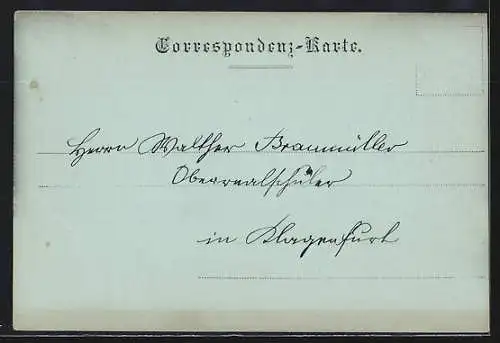 Correspondenz-Karte.
Herrn Walther Braumüller
Oberrealschüler
in Klagenfurt